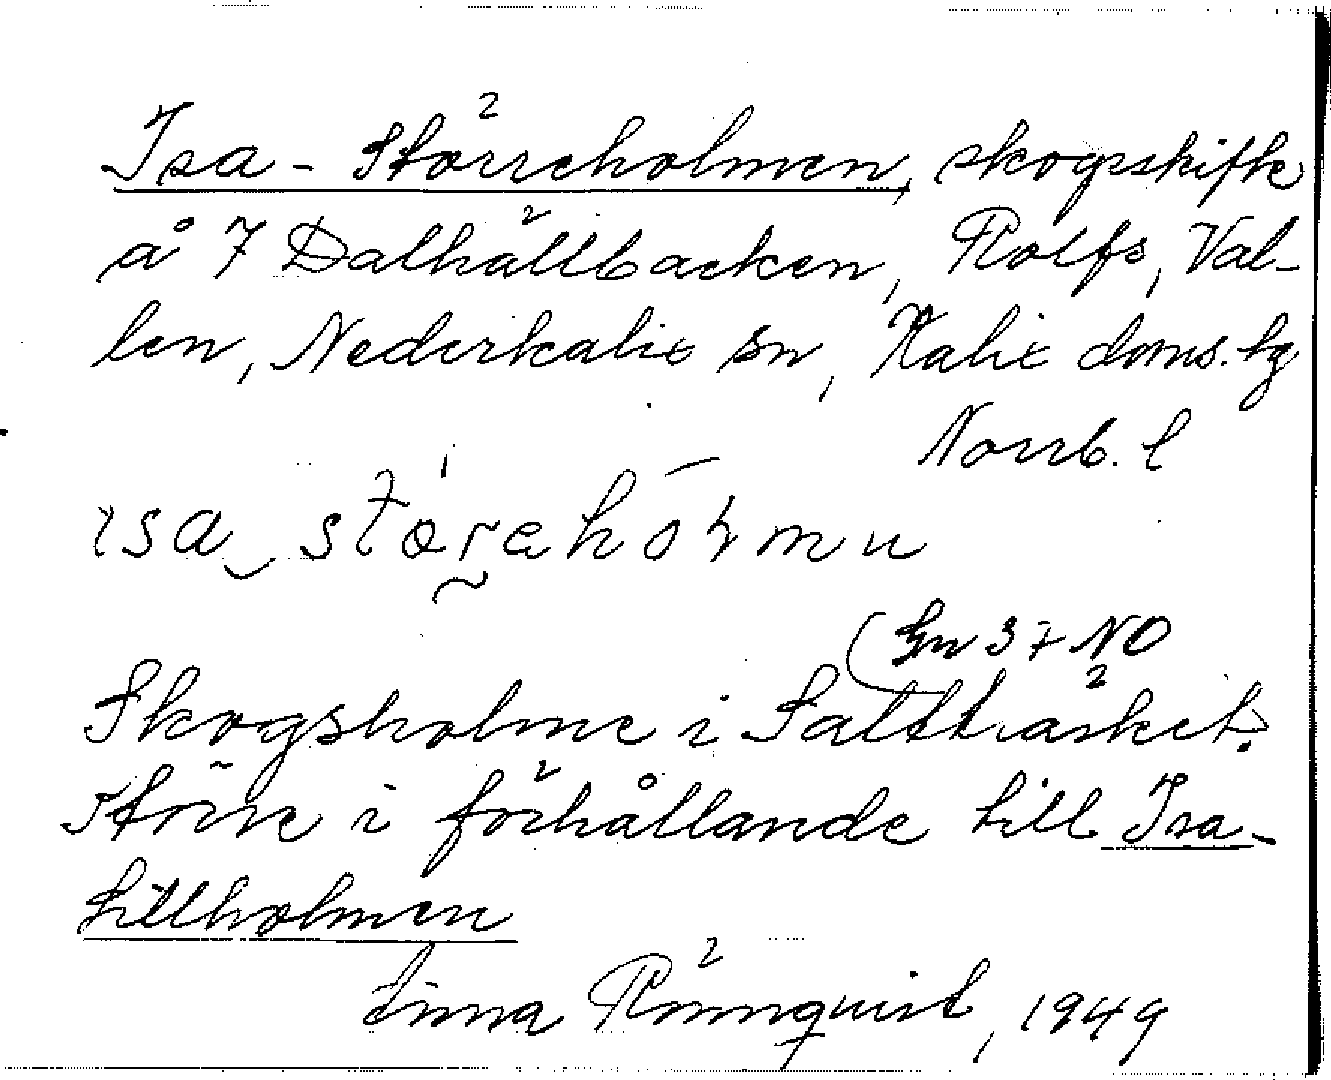 Isa-Störreholmen, skogsskifte
å 7 Dalhällbacken, Rolfs, Val-
len, Nederkalix sn, Kalix doms. tg
Norrb. l
ɩsa störeholmu
(Gn 37 NO
Skogsholme i Sattträsket.
Större i förhållande till Isa-
lillholmen
Linna Rönnquist, 1949